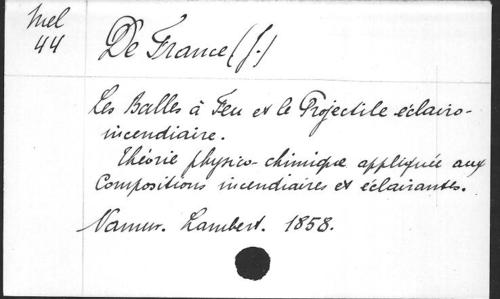 Mel
44
De France (J.)
Les Balles à Feu et le Projectile éclairo-
incendiaire.
Théorie physico-chimique appliquée aux
Compositions incendiaires et éclairantes.
Namur. Lambert. 1858.